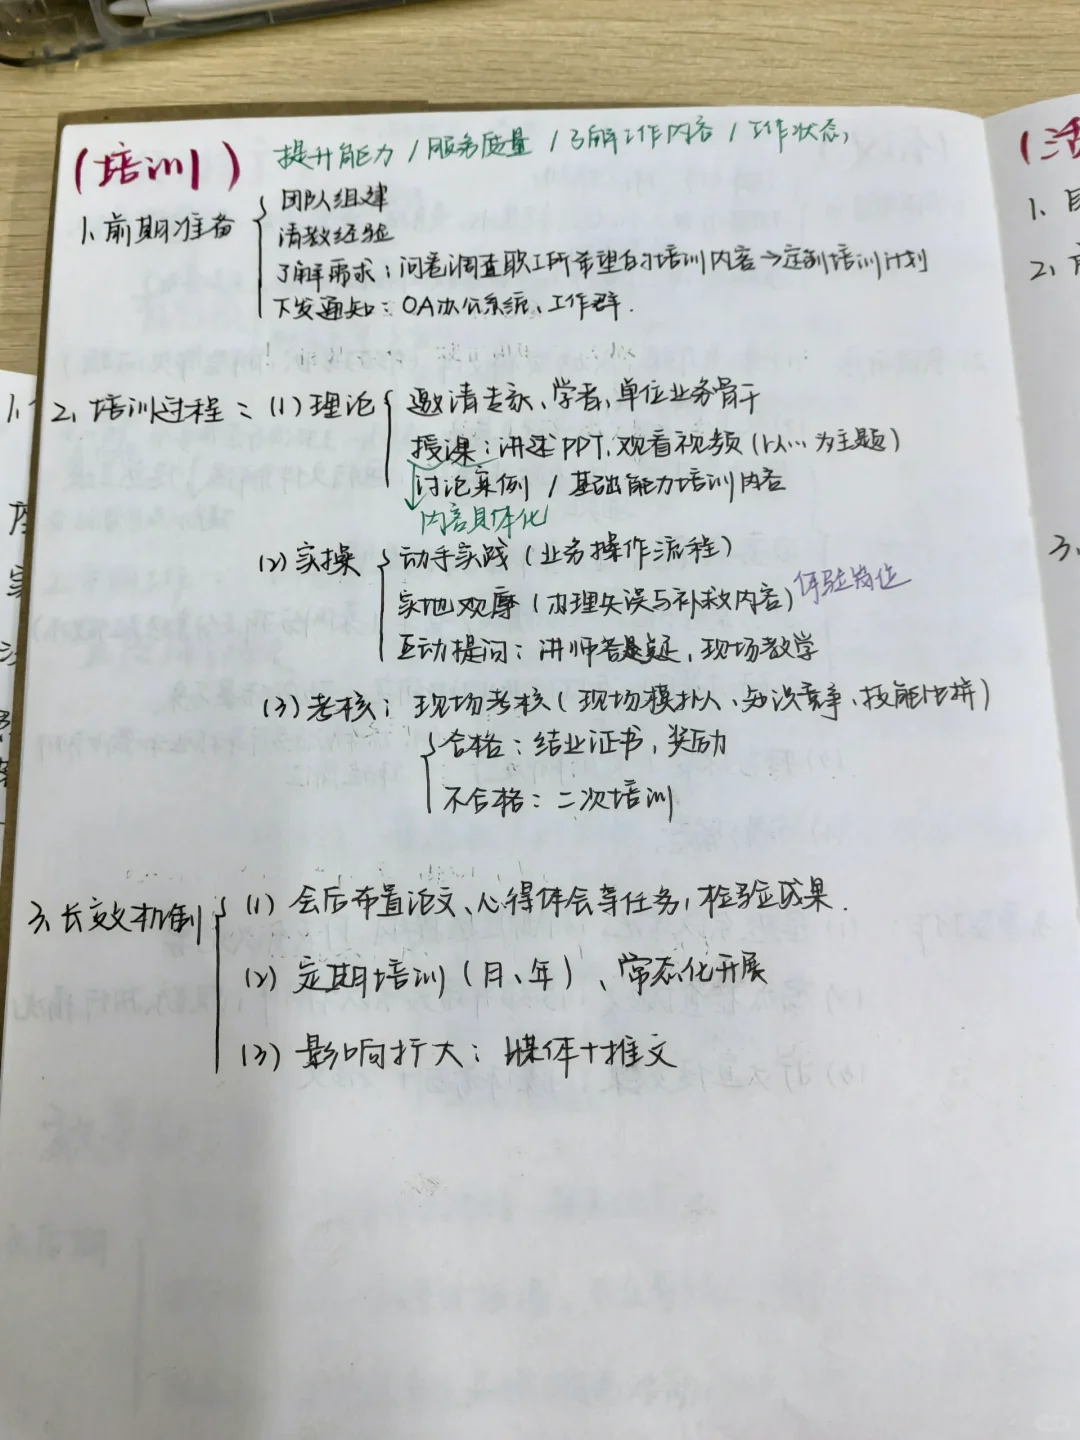 (培训)
提升能力/服务质量/了解工作内容/工作状态,
1、前期准备
团队组建
请教经验
了解需求:问卷调查职工所希望的培训内容→定制培训计划
下发通知:OA办公系统、工作群.
2、培训过程:(1)理论
邀请专家、学者,单位业务骨干
授课:讲述PPT,观看视频(以…为主题)
讨论案例/基础能力培训内容
内容具体化
(2)实操
动手实践(业务操作流程)
实地观摩(办理失误与补救内容)体验岗位
互动提问:讲师答疑,现场教学
(3)考核:现场考核(现场模拟、知识竞争、技能比拼)
合格:结业证书,奖励
不合格:二次培训
3、长效机制
(1)会后布置论文、心得体会等任务,检验成果.
(2)定期培训(月、年)、常态化开展
(3)影响扩大:媒体+推文
(活
1、
2、
3、
1、